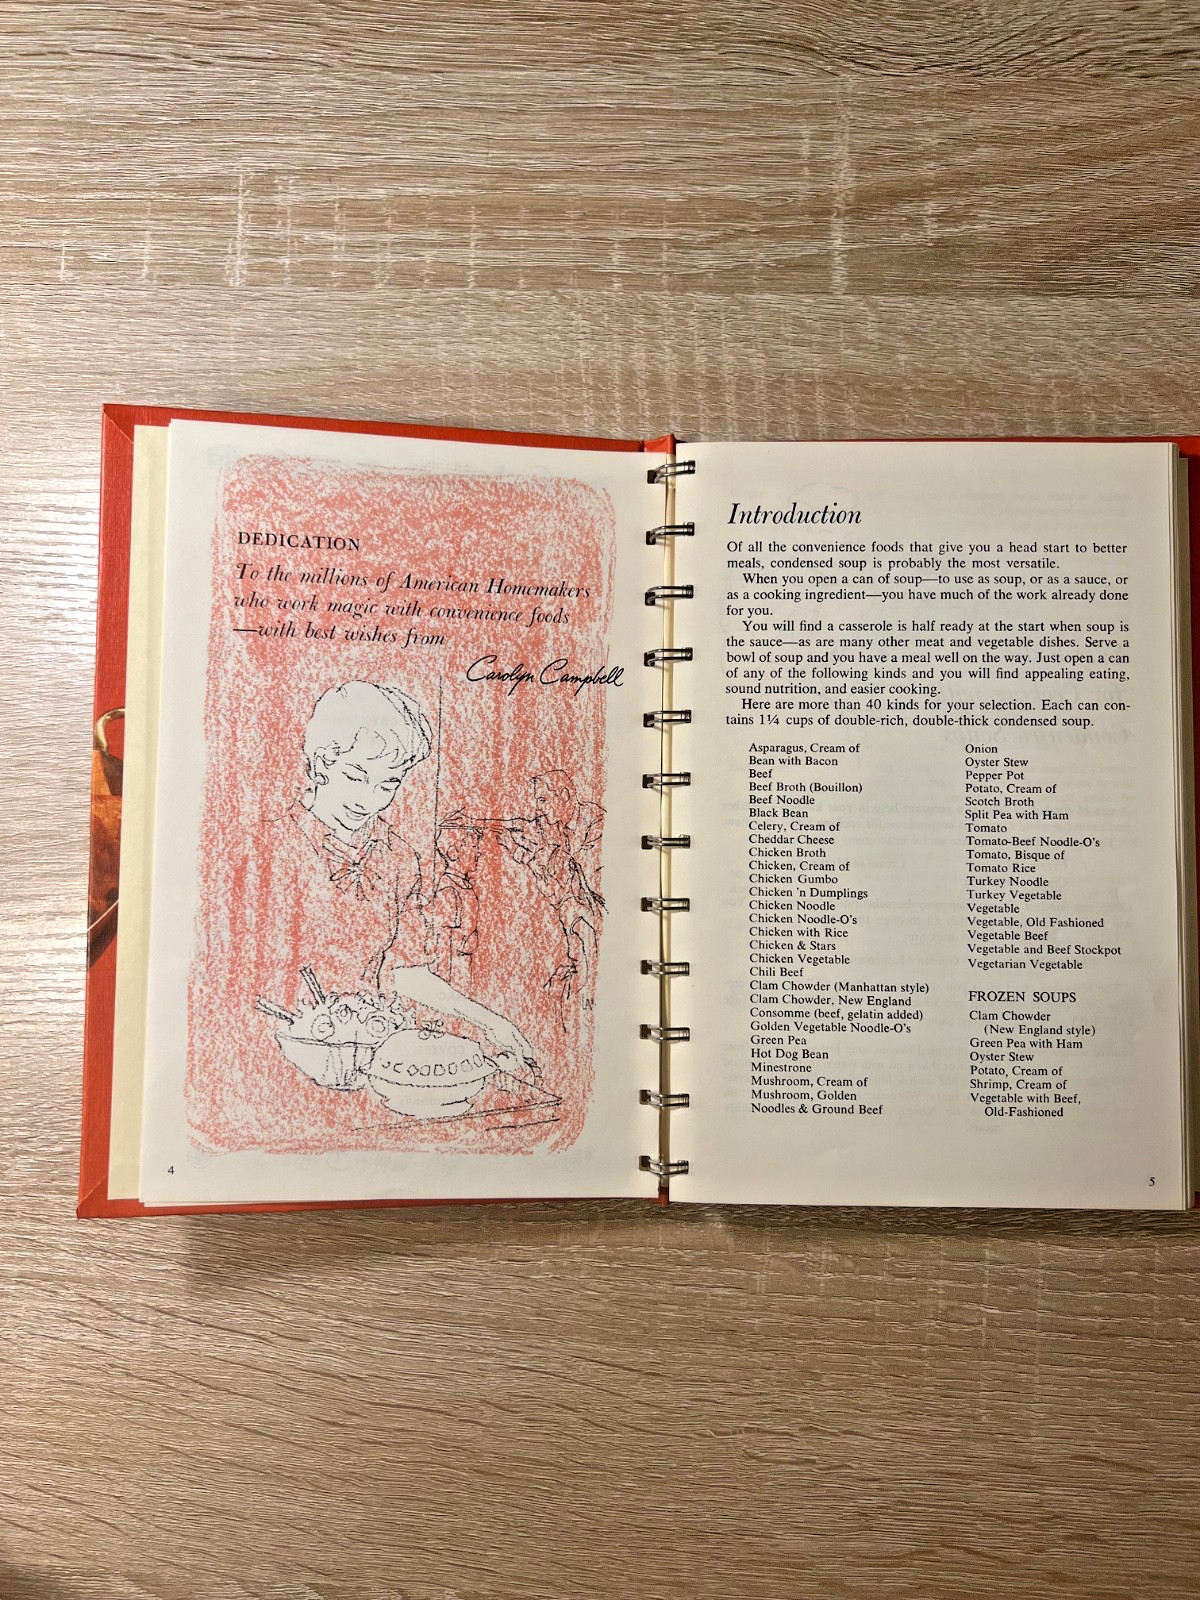 DEDICATION
To the millions of American Homemakers
who work magic with convenience foods
—with best wishes from
Carolyn Campbell
4
Introduction
Of all the convenience foods that give you a head start to better
meals, condensed soup is probably the most versatile.
When you open a can of soup—to use as soup, or as a sauce, or
as a cooking ingredient—you have much of the work already done
for you.
You will find a casserole is half ready at the start when soup is
the sauce—as are many other meat and vegetable dishes. Serve a
bowl of soup and you have a meal well on the way. Just open a can
of any of the following kinds and you will find appealing eating,
sound nutrition, and easier cooking.
Here are more than 40 kinds for your selection. Each can con-
tains 1¼ cups of double-rich, double-thick condensed soup.
Asparagus, Cream of
Bean with Bacon
Beef
Beef Broth (Bouillon)
Beef Noodle
Black Bean
Celery, Cream of
Cheddar Cheese
Chicken Broth
Chicken, Cream of
Chicken Gumbo
Chicken 'n Dumplings
Chicken Noodle
Chicken Noodle-O's
Chicken with Rice
Chicken & Stars
Chicken Vegetable
Chili Beef
Clam Chowder (Manhattan style)
Clam Chowder, New England
Consomme (beef, gelatin added)
Golden Vegetable Noodle-O's
Green Pea
Hot Dog Bean
Minestrone
Mushroom, Cream of
Mushroom, Golden
Noodles & Ground Beef
Onion
Oyster Stew
Pepper Pot
Potato, Cream of
Scotch Broth
Split Pea with Ham
Tomato
Tomato-Beef Noodle-O's
Tomato, Bisque of
Tomato Rice
Turkey Noodle
Turkey Vegetable
Vegetable
Vegetable, Old Fashioned
Vegetable Beef
Vegetable and Beef Stockpot
Vegetarian Vegetable
FROZEN SOUPS
Clam Chowder
(New England style)
Green Pea with Ham
Oyster Stew
Potato, Cream of
Shrimp, Cream of
Vegetable with Beef,
Old-Fashioned
5